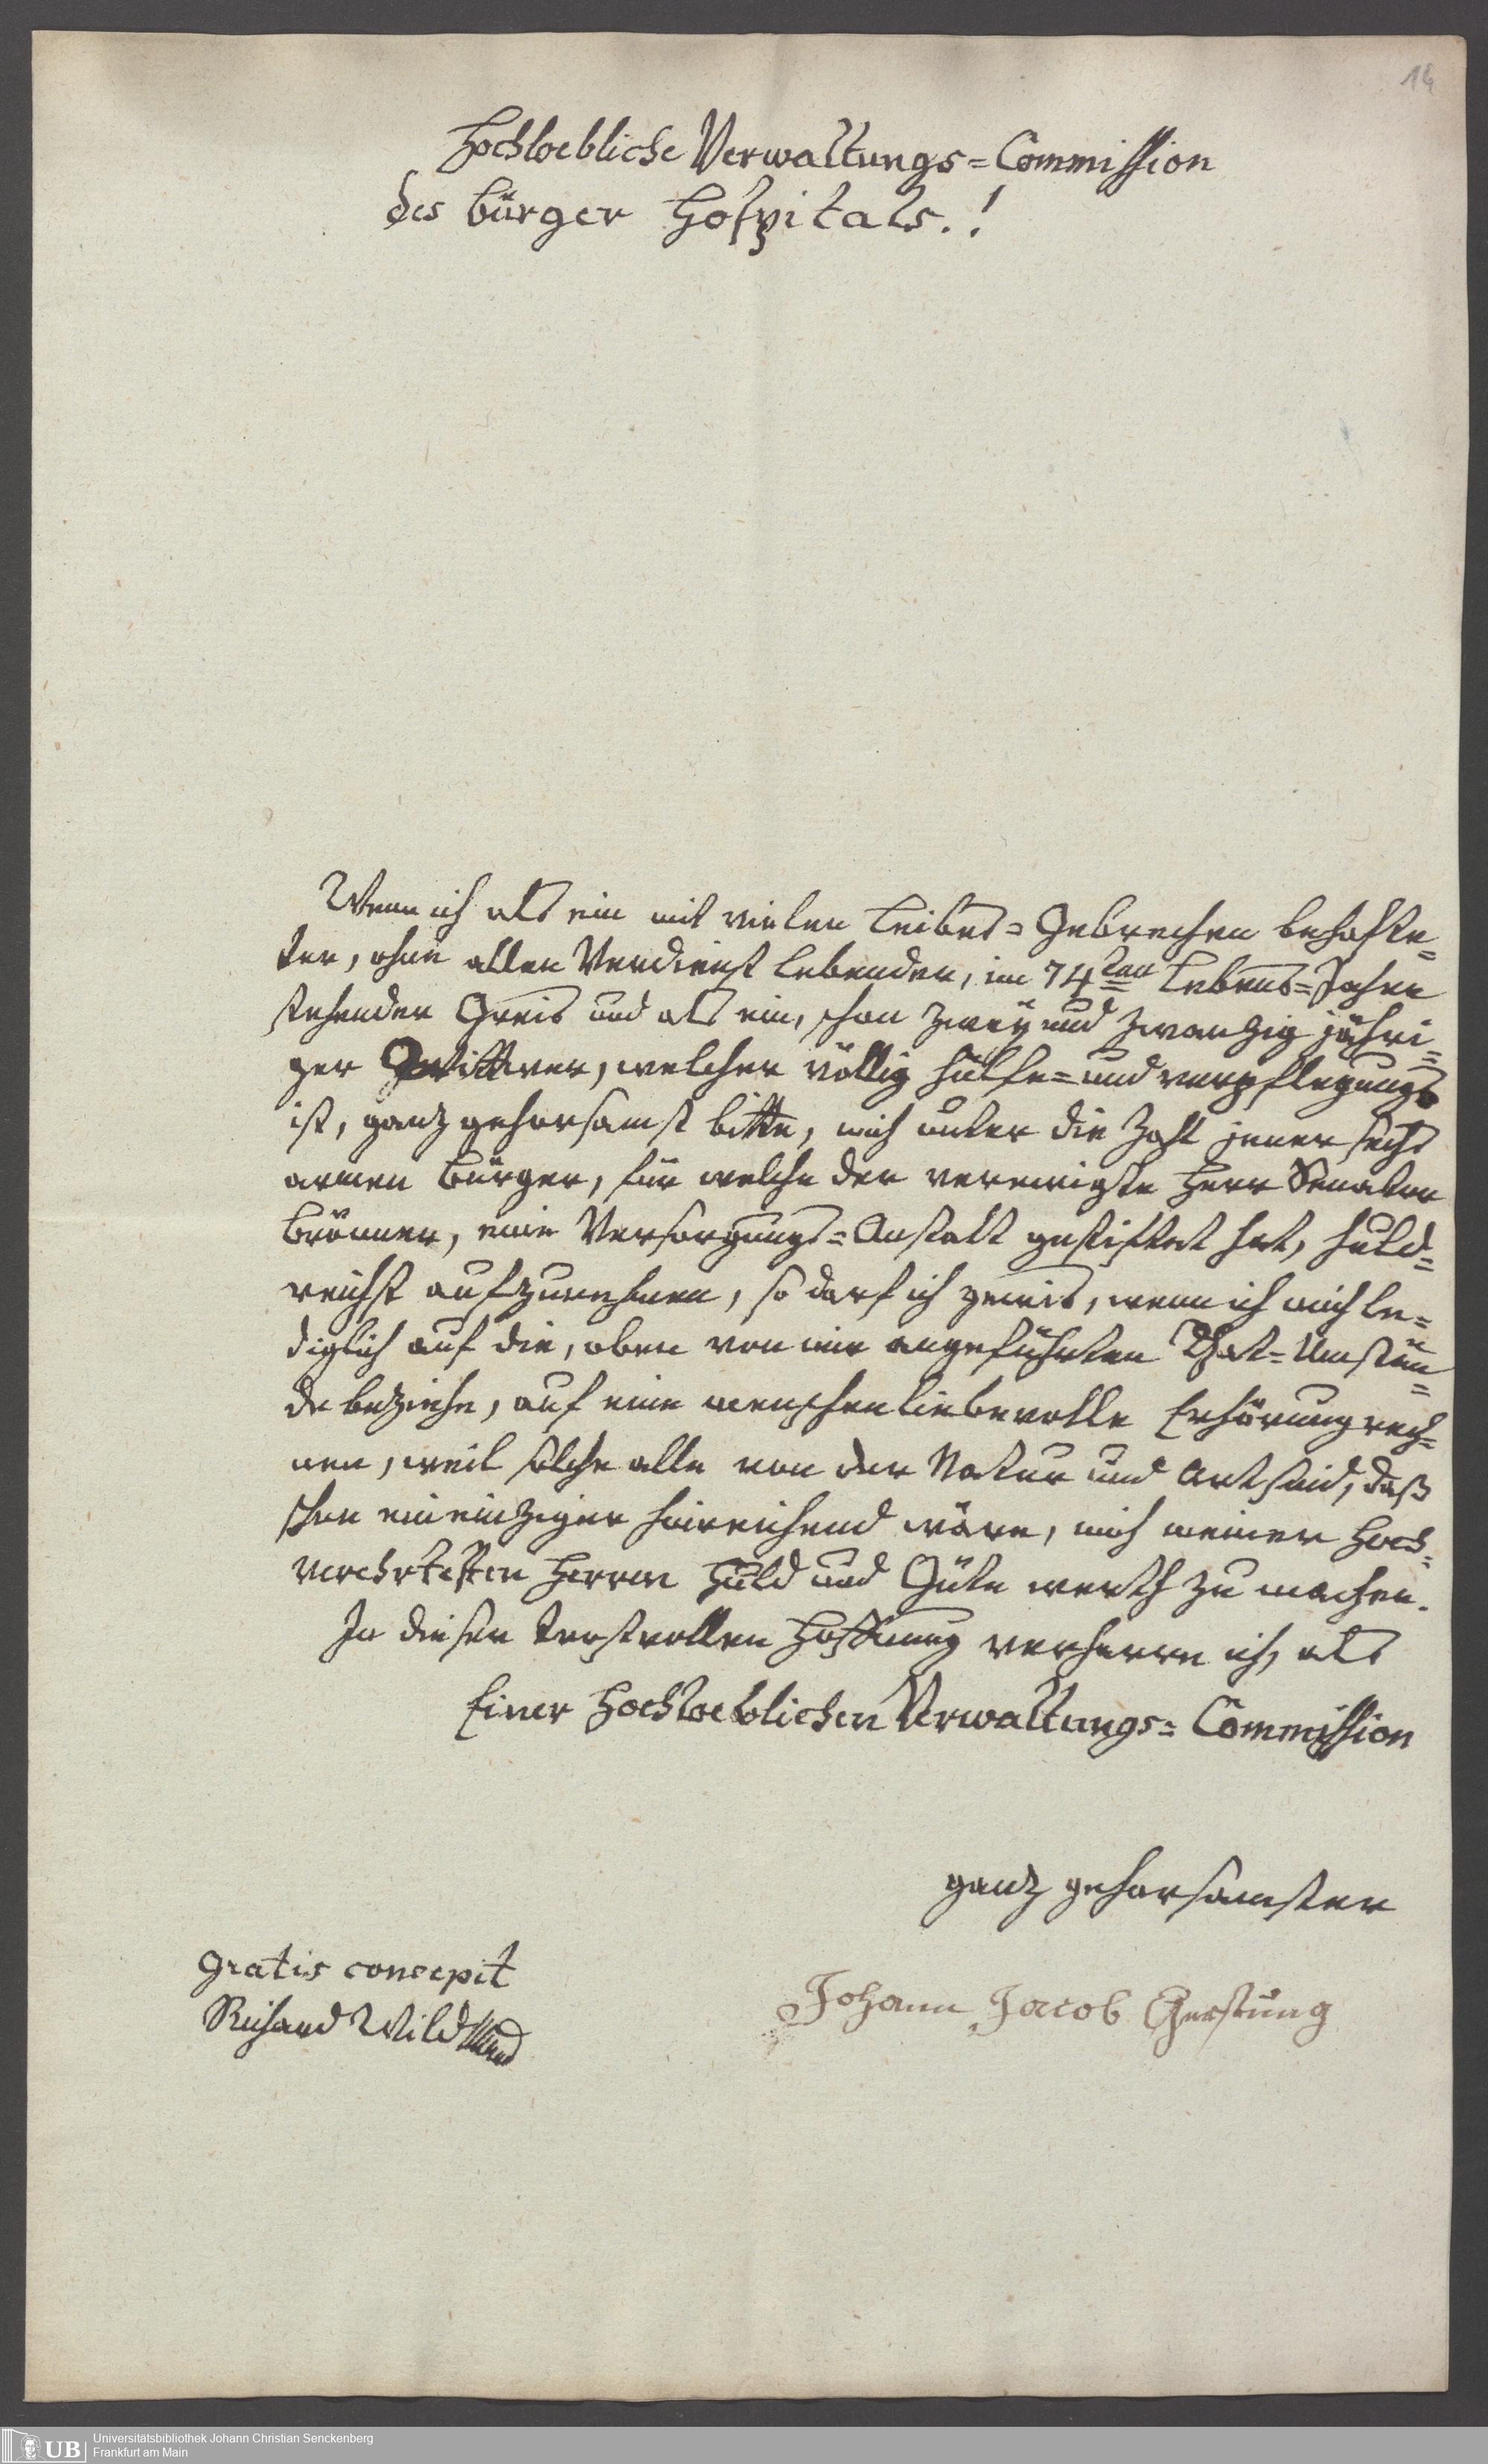 14
Hochloebliche Verwaltungs=Commission
des bürger Hospitals.!
Wenn ich als ein mit vielen Leibes=Gebrechen behafte=
ter, ohne allen Verdienst lebender, im 74ten Lebens=Jahre
stehender Greis und als ein, schon zwey und zwanzig jähri=
ger Wittwer, welcher völlig hülfe= und verpflegungs
ist, ganz gehorsamst bitte, mich unter die Zahl jener sechs
armen Bürger, für welche der verewigte Herr Senator
Brönner, eine Versorgungs=Anstalt gestiftet hat, huld=
reichst aufzunehmen, so darf ich gewis, wenn ich mich le=
diglich auf die, oben von mir angeführten That=Umstän=
de beziehe, auf eine menschenliebevolle Erhörung rech=
nen, weil solche alle von der Natur und Art sind, daß
schon ein einziger hinreichend wäre, mich meiner Hoch=
verehrtesten Herren Huld und Güte werth zu machen.
In dieser trostvollen Hoffnung verharre ich, als
Einer Hochloeblichen Verwaltungs=Commission
ganz gehorsamster
Johann Jacob Gerstung
gratis concepit
Richard Wild
UB Universitätsbibliothek Johann Christian Senckenberg
Frankfurt am Main